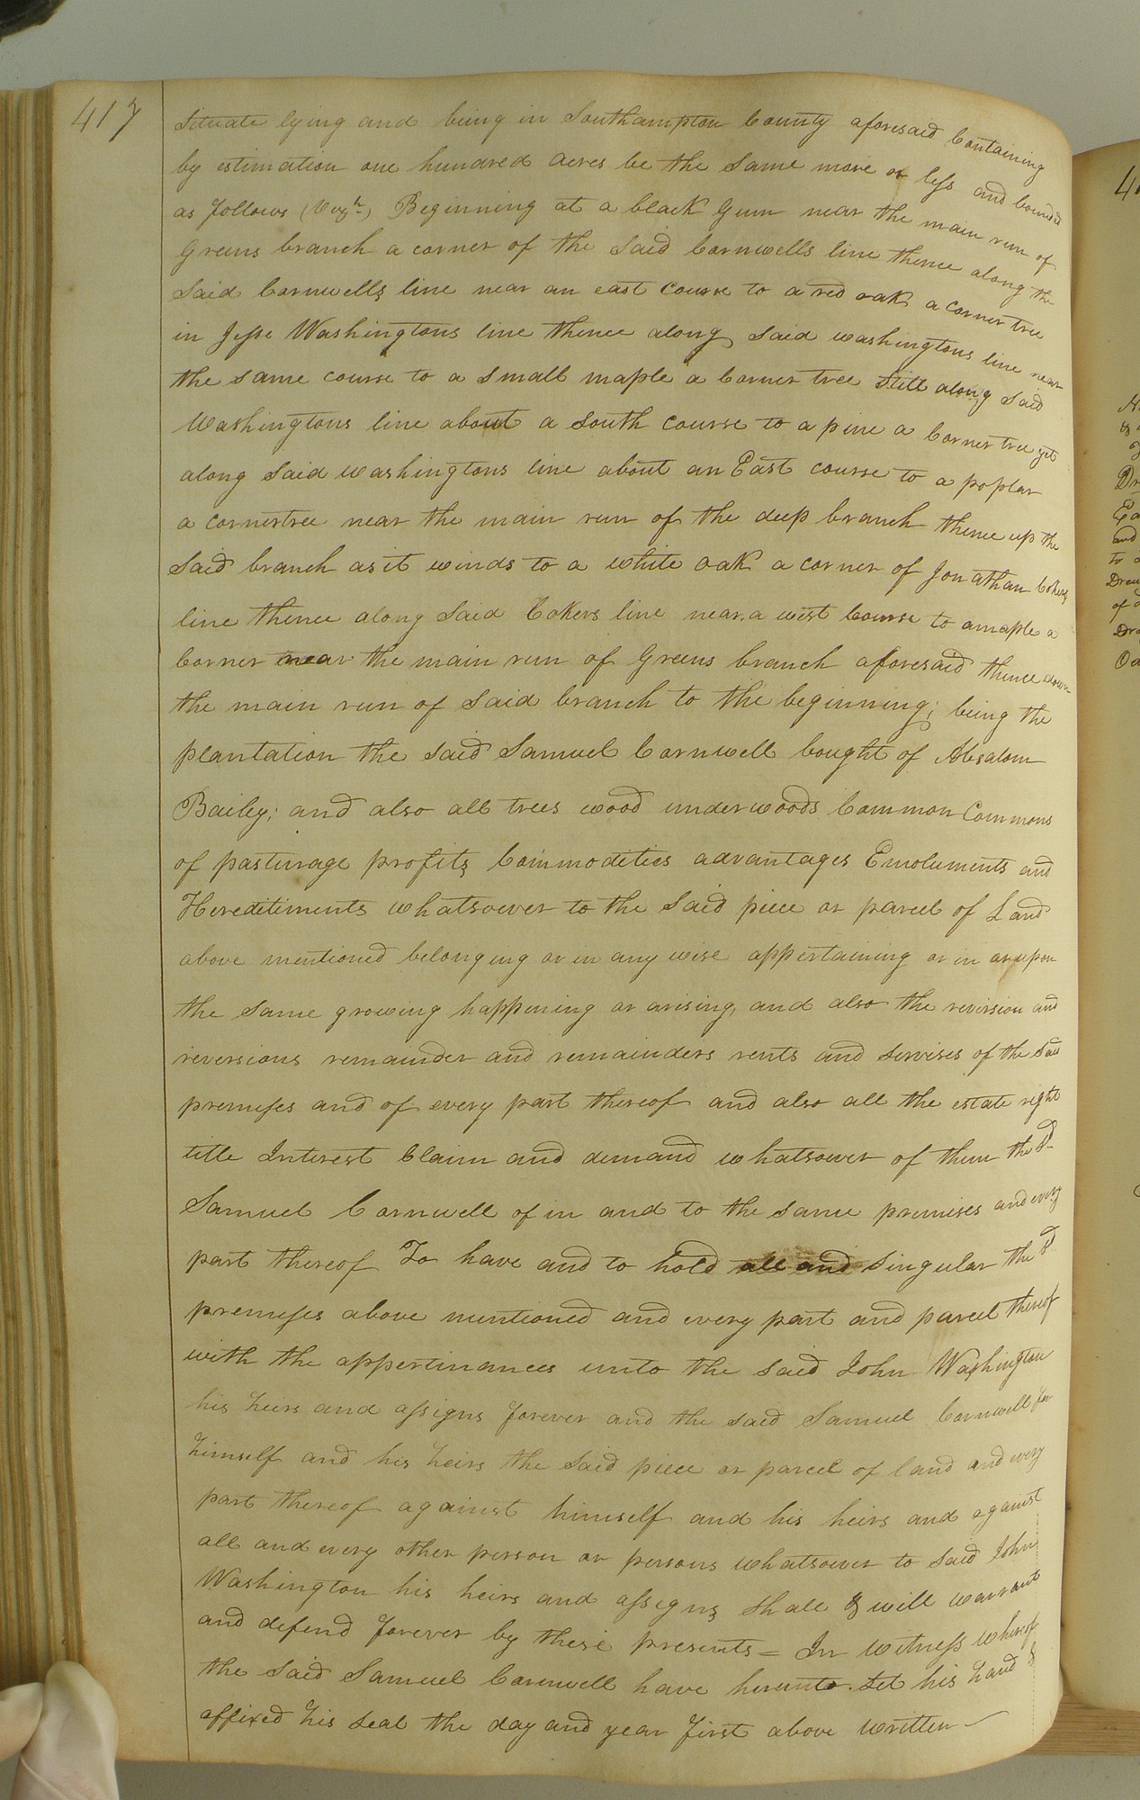 417
Situate lying and being in Southampton County aforesaid Containing
by estimation one hundred acres be the same more or less and bounded
as follows (Viz) Beginning at a black Gum near the main run of
Greens branch a corner of the said Cornwells line thence along the
Said Cornwells line near an east course to a red oak a corner tree
in Jesse Washingtons line thence along said washingtons line near
the same course to a small maple a Corner tree still along said
Washingtons line about a south course to a pine a Corner tree yet
along said washingtons line about an East course to a poplar
a cornertree near the main run of the deep branch thence up the
said branch as it winds to a white oak a corner of Jonathan Cokers
line thence along said Cokers line near a west Course to a maple a
Corner near the main run of Greens branch aforesaid thence down
the main run of said branch to the beginning; being the
plantation the said Samuel Cornwell bought of Absalom
Bailey; and also all trees wood underwoods Common Commons
of pasturage profits Commodities advantages Emoluments and
Hereditiments whatsoever to the said piece or parcel of Land
above mentioned belonging or in any wise appertaining or in or upon
the same growing happening or arising, and also the revirsion and
reversions remainder and remainders rents and servises of the said
premises and of every part thereof and also all the estate right
title Interest Claim and demand whatsoever of them the sd
Samuel Cornwell of in and to the same premises and every
part thereof To have and to hold all and singular the sd
premises above mentioned and every part and parcel thereof
with the appertinances unto the said John Washington
his heirs and assigns forever and the said Samuel Cornwell for
himself and his heirs the said piece or parcel of land and every
part thereof against himself and his heirs and against
all and every other person or persons whatsoever to said John
Washington his heirs and assigns shall & will warrant
and defend forever by these presents = In witness whereof
the said Samuel Cornwell have hereunto set his hand &
affixed his seal the day and year first above written